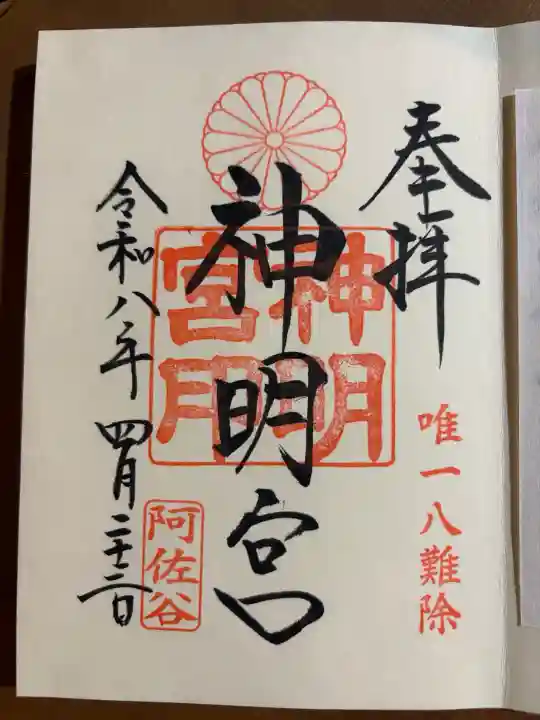 奉拝
唯一八難除
神明宮
神明
宮印
令和八年 四月二十三日
阿佐谷